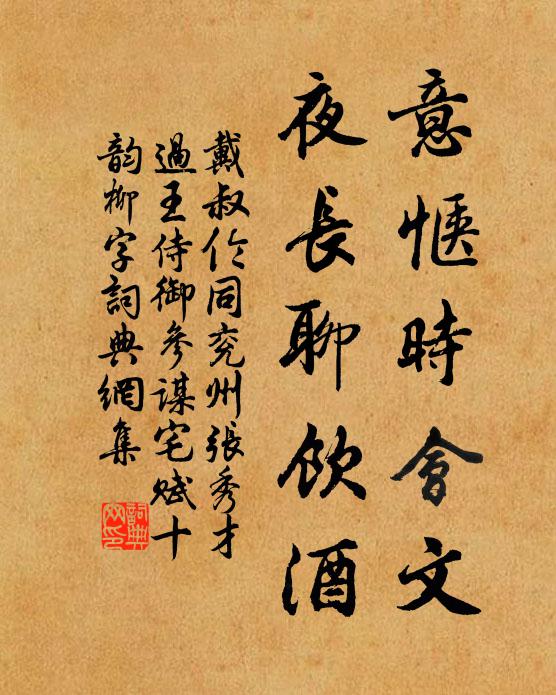 意愜時會文
夜長聊飲酒
戴叔伦同兖州張秀才
過王侍御參謀宅賦十
韵柳字詞典網集
詞典网印